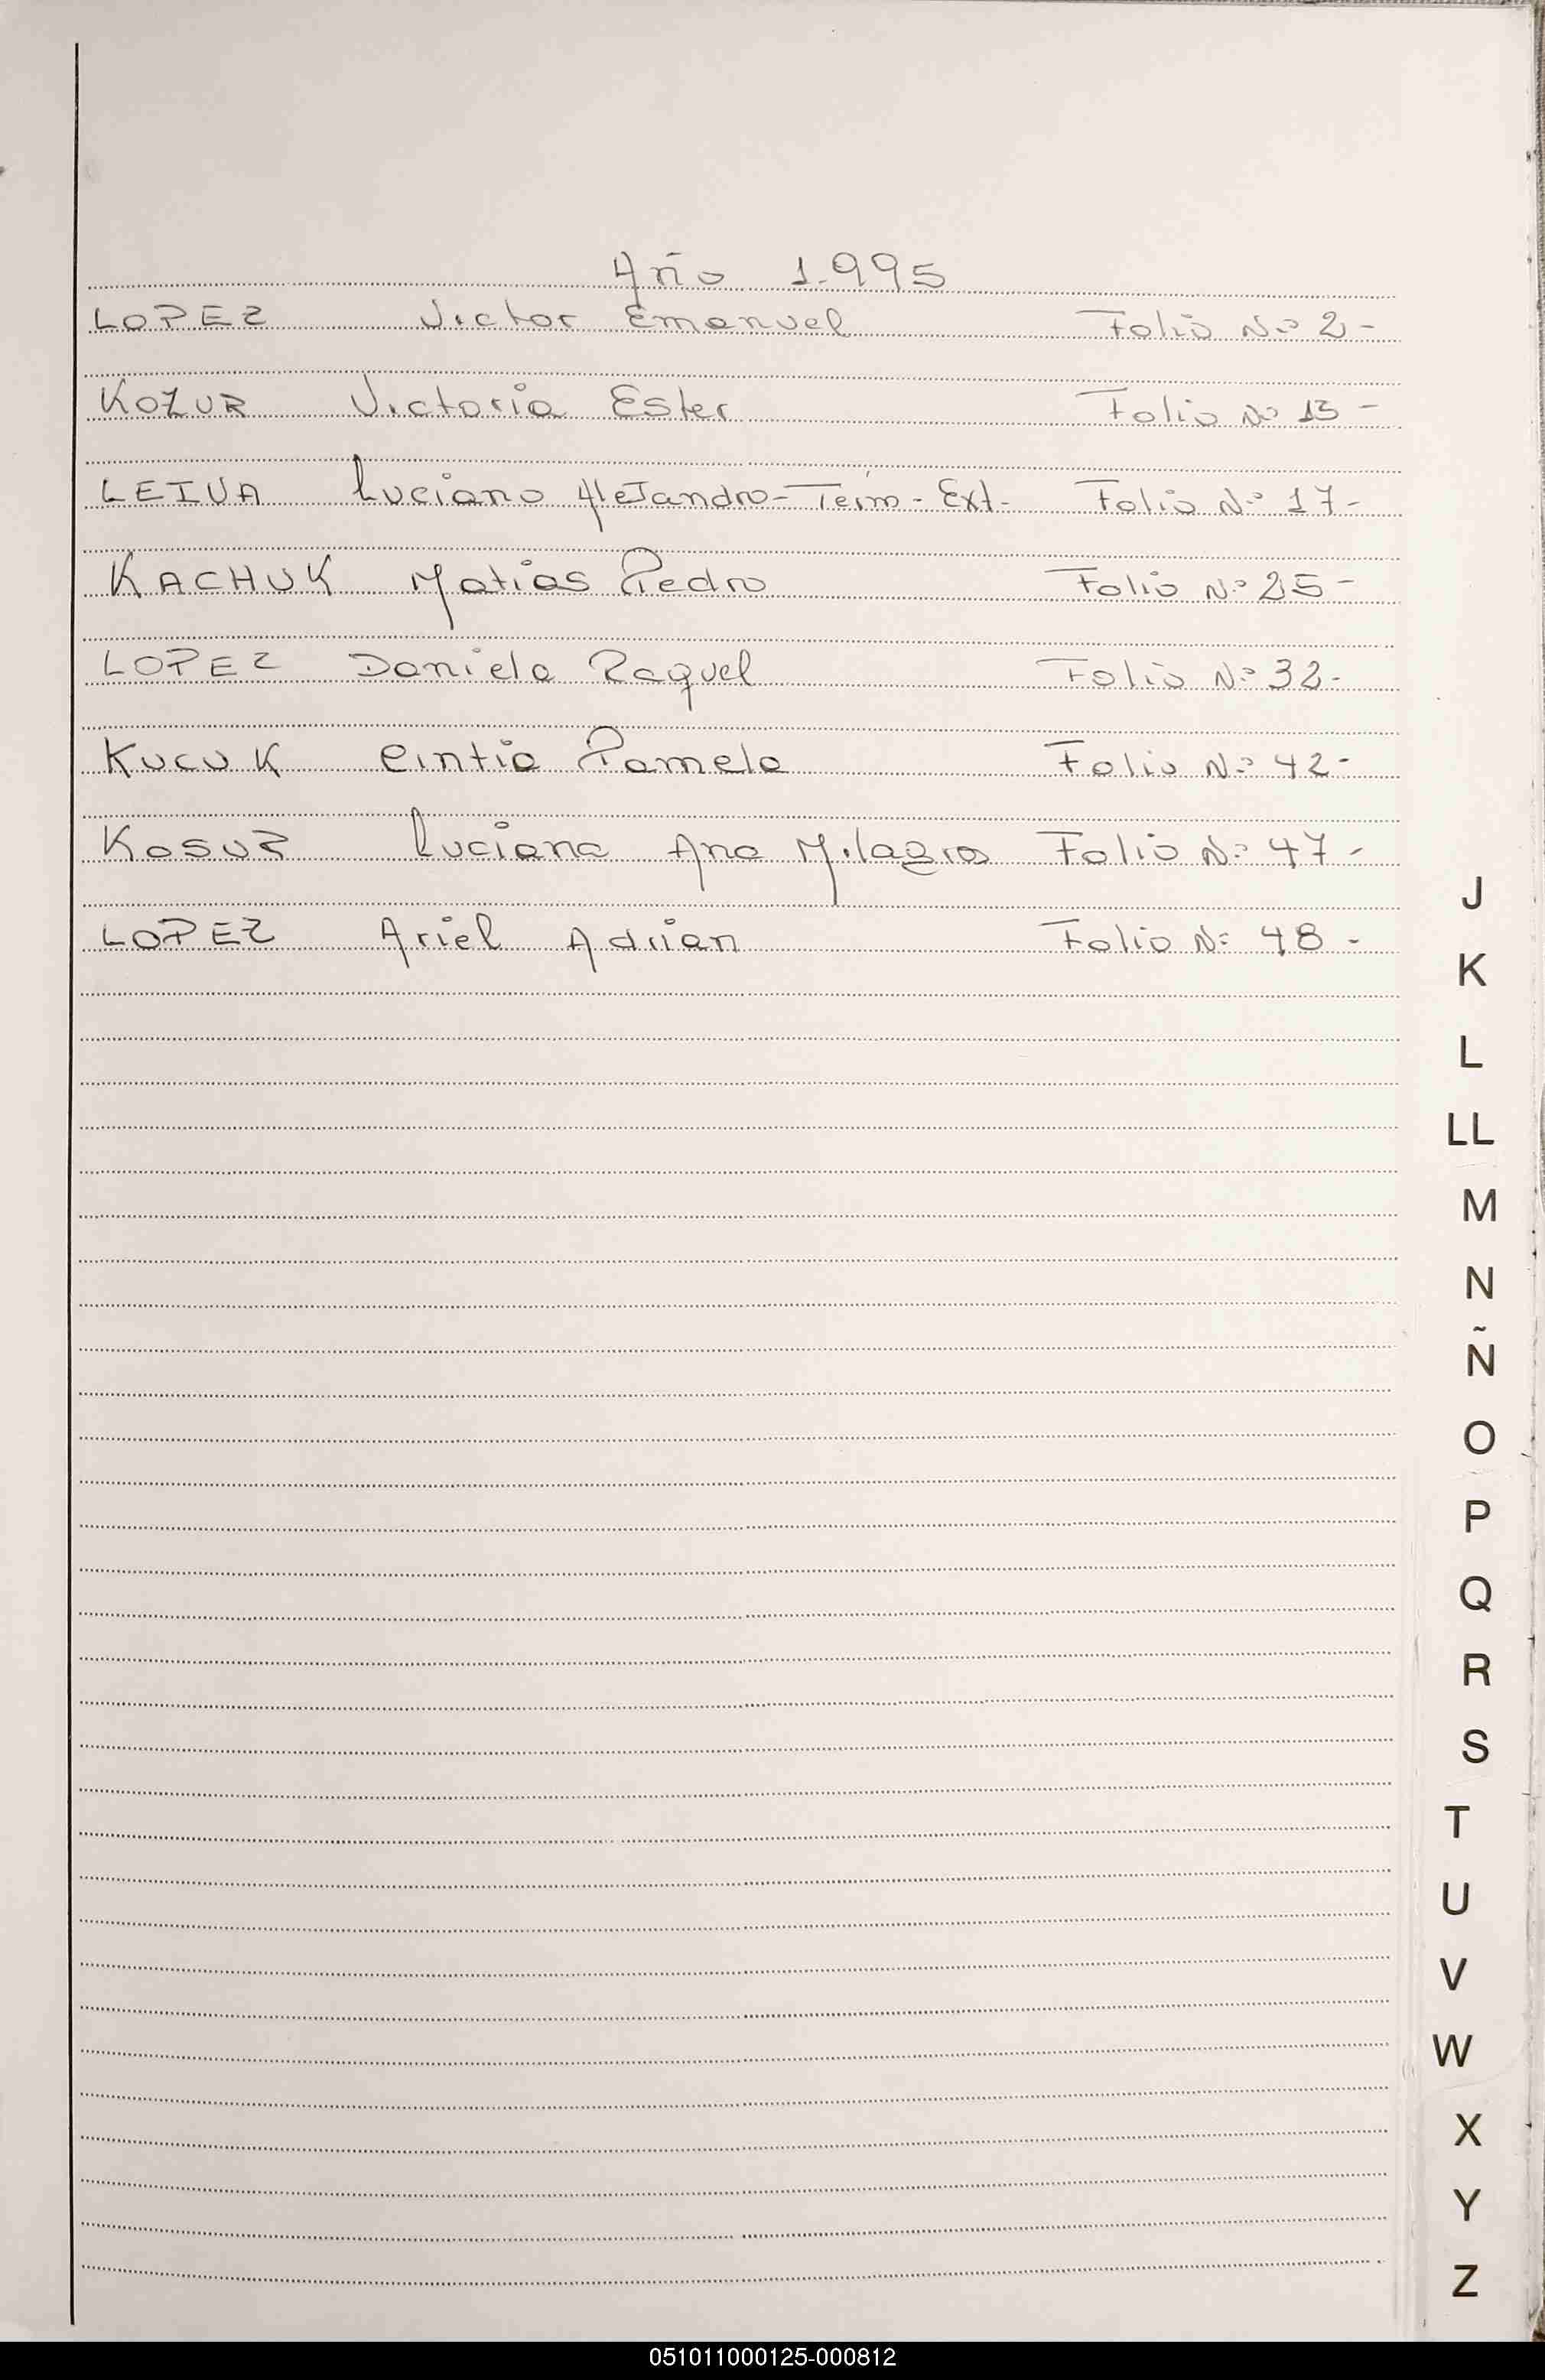 Año 1.995
LOPEZ Victor Emanuel Folio Nº 2-
KOZUR Victoria Ester Folio Nº 13-
LEIVA Luciano AleJandro-Teim-Ext- Folio Nº 17-
KACHUK Matias Pedro Folio Nº 25-
LOPEZ Daniela Raquel Folio Nº 32-
KUCUK Cintia Pamela Folio Nº 42-
KOSUR Luciana Ana Milagros Folio Nº 47-
LOPEZ Ariel Adrian Folio Nº 48-
J
K
L
LL
M
N
Ñ
O
P
Q
R
S
T
U
V
W
X
Y
Z
051011000125-000812